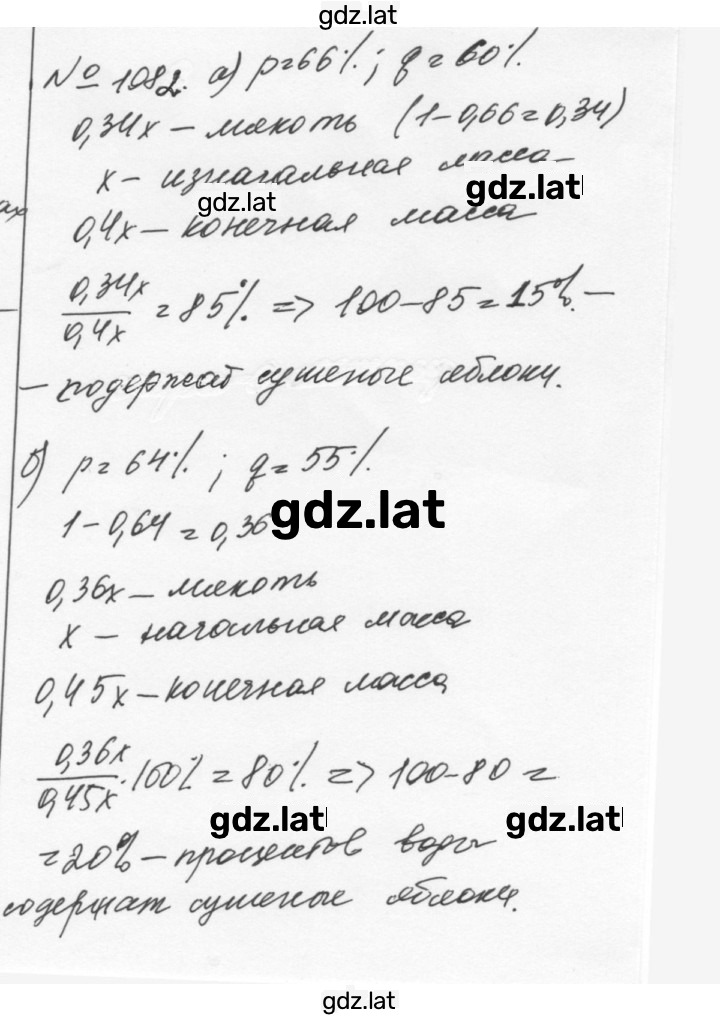 gdz.lat
№ 1082. а) p=66%; q=60%.
0,34x – мякоть (1–0,66=0,34)
x – изначальная масса
gdz.lat
gdz.lat
0,4x – конечная масса
0,34x/0,4x = 85%. => 100–85=15%. –
– содержат сушеные яблоки.
б) p=64%; q=55%.
1–0,64=0,36
gdz.lat
0,36x – мякоть
x – начальная масса
0,45x – конечная масса
0,36x/0,45x · 100% = 80%. => 100–80=
gdz.lat
gdz.lat
=20% – процентов воды
содержат сушеные яблоки.
gdz.lat